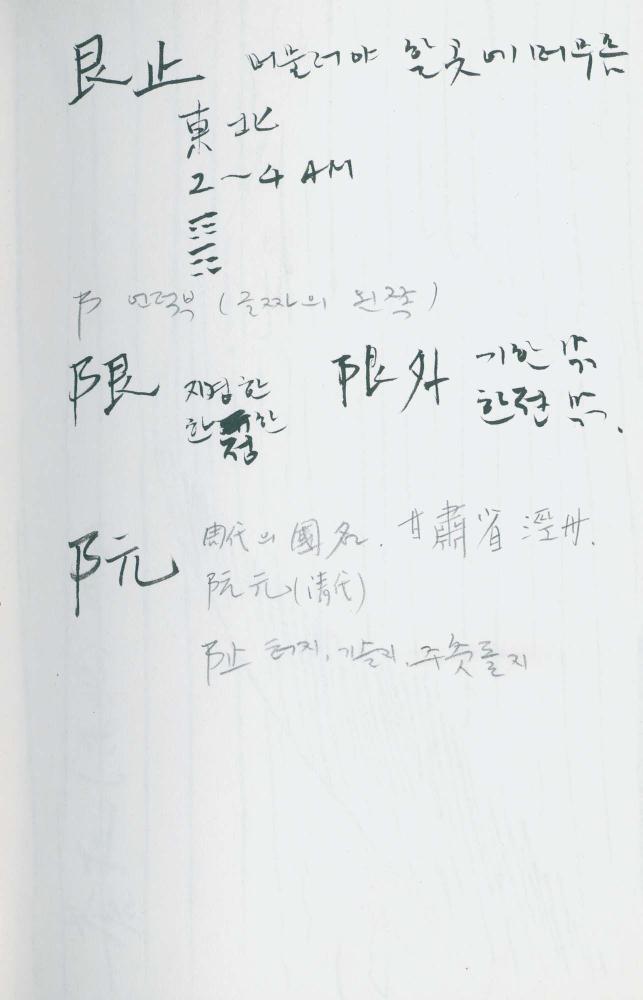 艮止 머물러야 할 곳에 머무름
東北
2~4 AM
阝 언덕부 (글짜의 왼쪽)
限 지경 한
한정 한
限外 기한 밖
한전 밖.
阮 周代의 國名. 甘肅省 涇州.
阮元 (淸代)
阯 터지, 기슭지, 주춧돌지